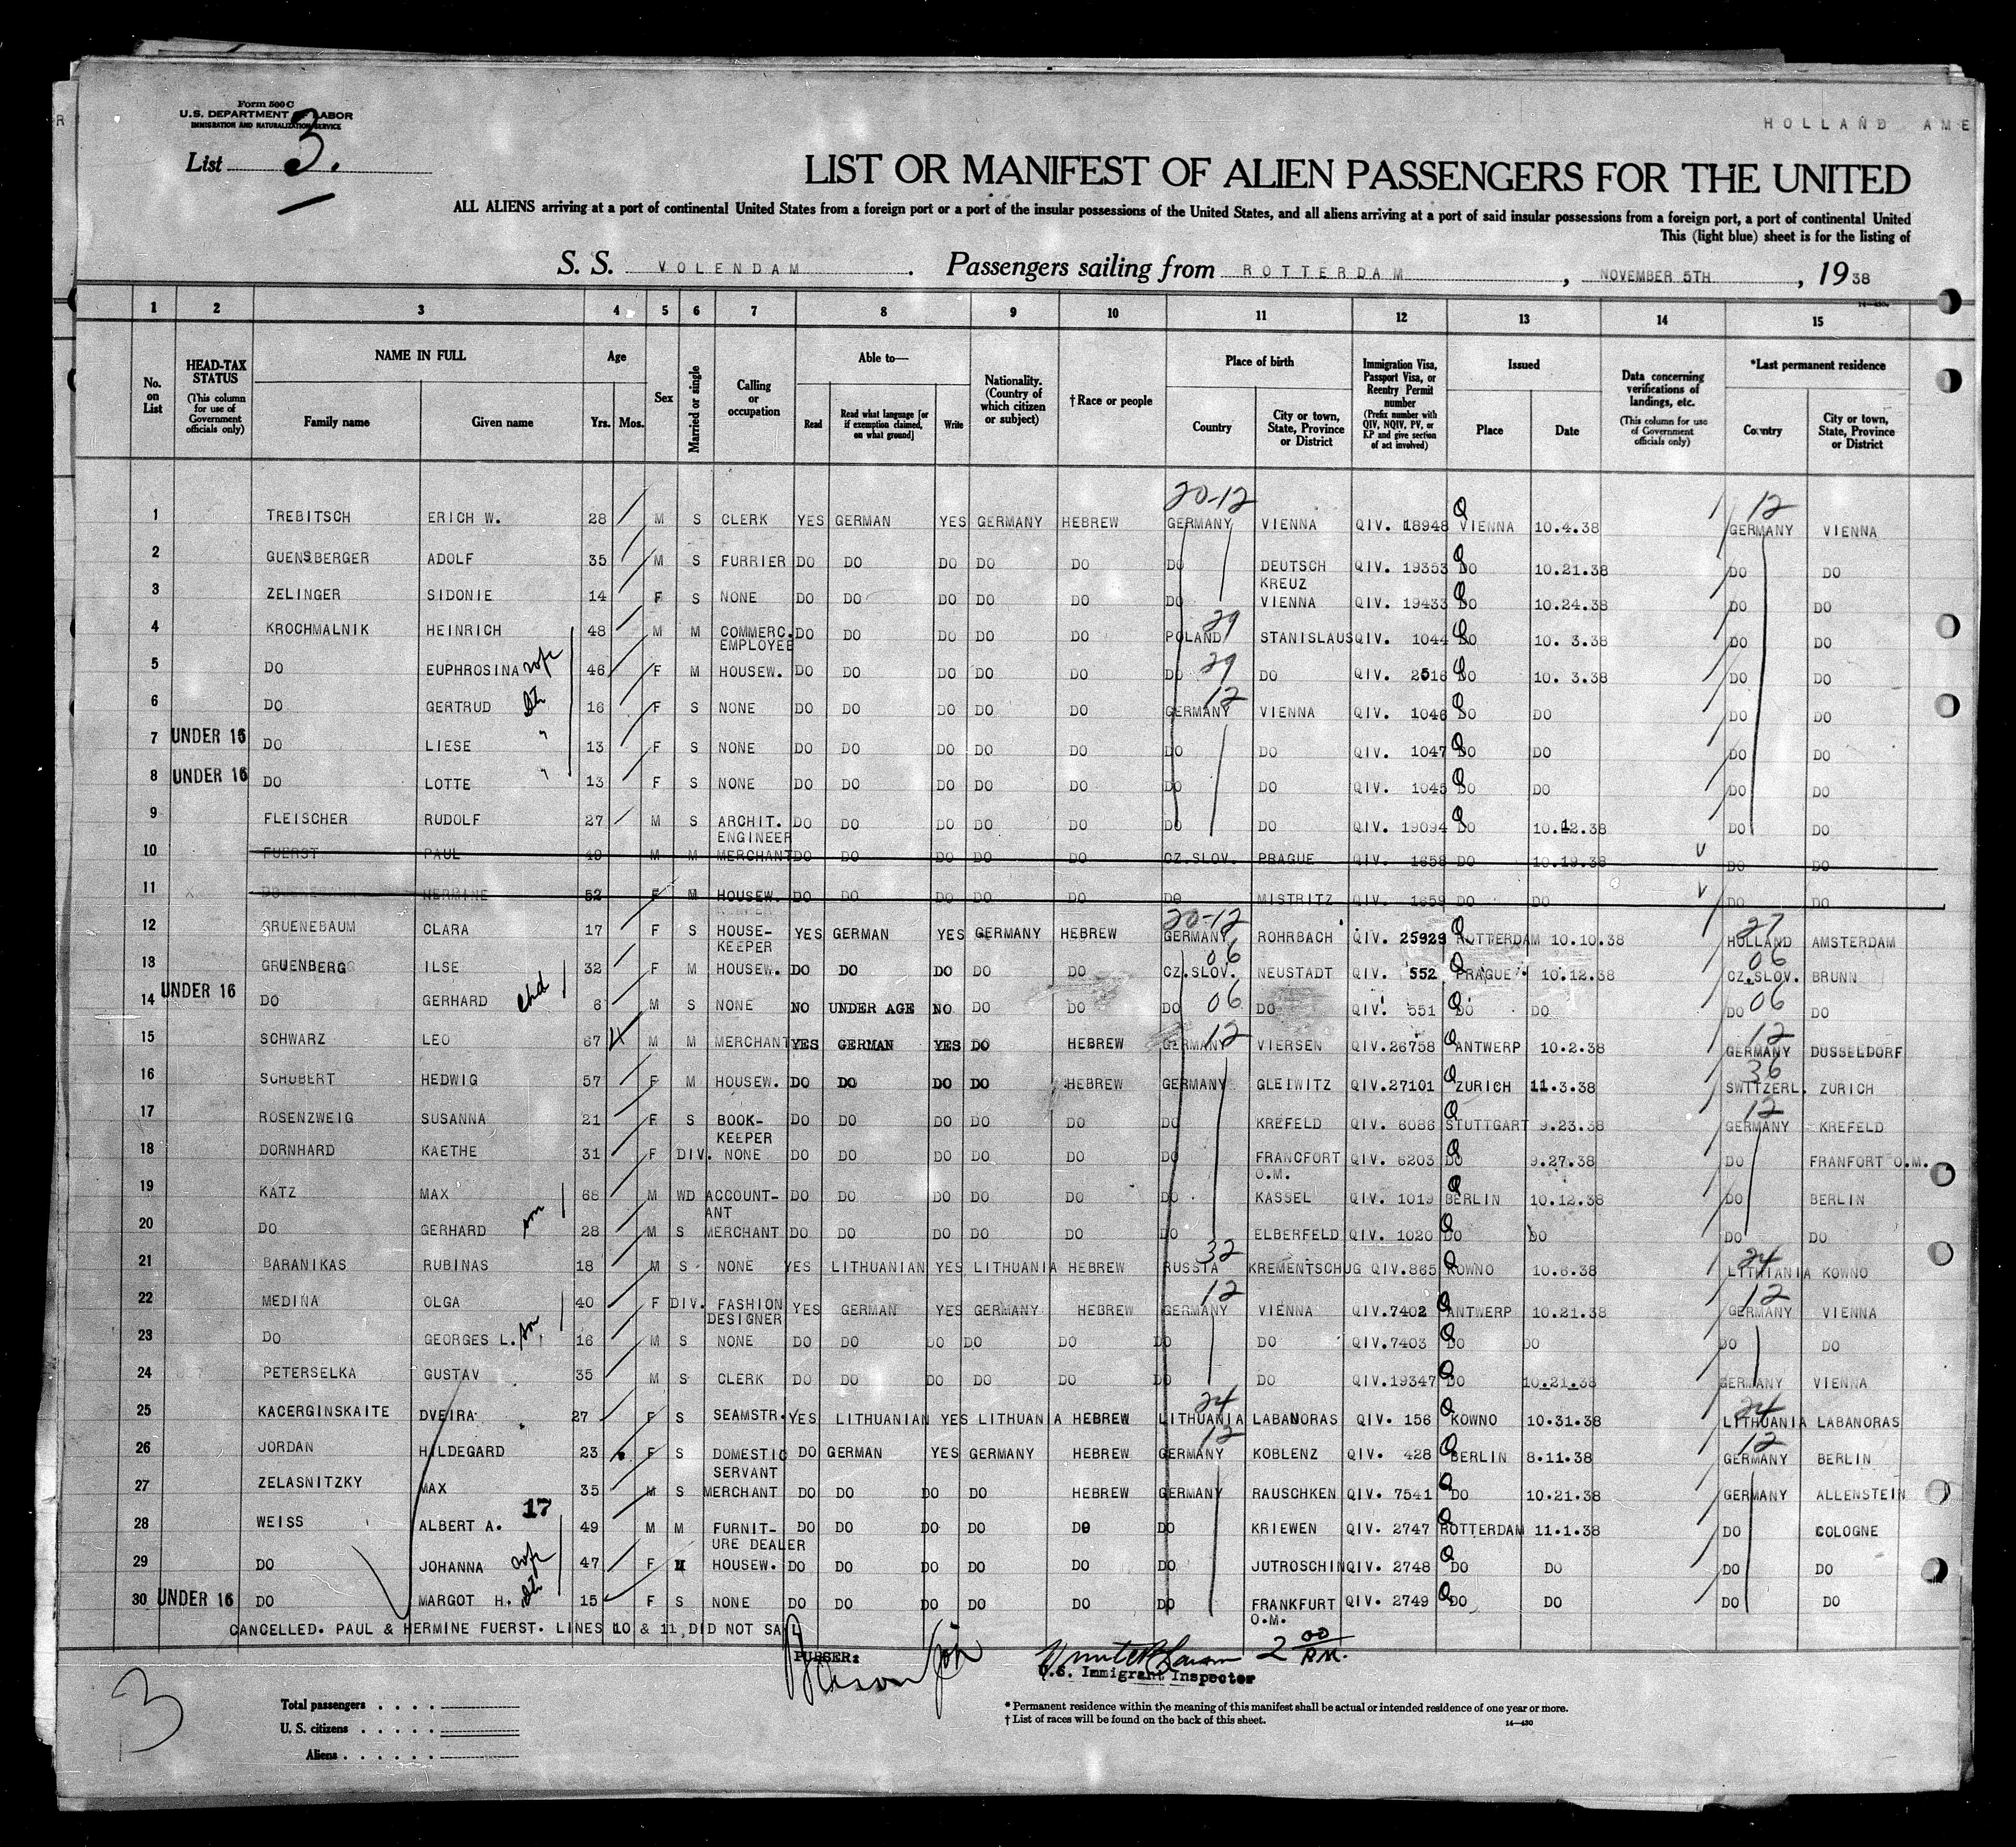 R
Form 500 C
U.S. DEPARTMENT OF LABOR
IMMIGRATION AND NATURALIZATION SERVICE
HOLLAND AME
List 3.
LIST OR MANIFEST OF ALIEN PASSENGERS FOR THE UNITED
ALL ALIENS arriving at a port of continental United States from a foreign port or a port of the insular possessions of the United States, and all aliens arriving at a port of said insular possessions from a foreign port, a port of continental United
This (light blue) sheet is for the listing of
S. S. VOLENDAM. Passengers sailing from ROTTERDAM, NOVEMBER 5TH, 1938
1 2 3 4 5 6 7 8 9 10 11 12 13 14 15
No. on List
HEAD-TAX STATUS (This column for use of Government officials only)
NAME IN FULL
Family name Given name
Age
Yrs. Mos.
Sex
Married or single
Calling or occupation
Able to—
Read
Read what language [or if exemption claimed, on what ground]
Write
Nationality. (Country of which citizen or subject)
†Race or people
Place of birth
Country
City or town, State, Province or District
Immigration Visa, Passport Visa, or Reentry Permit number (Prefix number with QIV, NQIV, PV, or KP and give section of act involved)
Issued
Place Date
Data concerning verifications of landings, etc. (This column for use of Government officials only)
*Last permanent residence
Country
City or town, State, Province or District
20-12 12
1 TREBITSCH ERICH W. 28 M S CLERK YES GERMAN YES GERMANY HEBREW GERMANY VIENNA QIV. 18948 VIENNA 10.4.38 GERMANY VIENNA
2 GUENSBERGER ADOLF 35 M S FURRIER DO DO DO DO DO DO DEUTSCH KREUZ QIV. 19353 DO 10.21.38 DO DO
3 ZELINGER SIDONIE 14 F S NONE DO DO DO DO DO DO VIENNA QIV. 19433 DO 10.24.38 DO DO
4 KROCHMALNIK HEINRICH 48 M M COMMERC. EMPLOYEE DO DO DO DO DO POLAND 29 STANISLAUS QIV. 1044 DO 10. 3.38 DO DO
5 DO EUPHROSINA wife 46 F M HOUSEW. DO DO DO DO DO DO 29 DO QIV. 2516 DO 10. 3.38 DO DO
6 DO GERTRUD 16 F S NONE DO DO DO DO DO GERMANY 12 VIENNA QIV. 1046 DO DO DO DO
7 UNDER 16 DO LIESE " 13 F S NONE DO DO DO DO DO DO DO QIV. 1047 DO DO DO DO
8 UNDER 16 DO LOTTE " 13 F S NONE DO DO DO DO DO DO DO QIV. 1045 DO DO DO DO
9 FLEISCHER RUDOLF 27 M S ARCHIT. ENGINEER DO DO DO DO DO DO DO QIV. 19094 DO 10.12.38 DO DO
10 FUERST PAUL 49 M M MERCHANT DO DO DO DO DO CZ.SLOV. PRAGUE QIV. 1658 DO 10.19.38 DO DO
11 DO HERMINE 52 F M HOUSEW. DO DO DO DO DO DO MISTRITZ QIV. 1659 DO DO DO DO
12 GRUENEBAUM CLARA 17 F S HOUSE-KEEPER YES GERMAN YES GERMANY HEBREW 20-12 GERMANY ROHRBACH QIV. 25929 ROTTERDAM 10.10.38 27 HOLLAND AMSTERDAM
13 GRUENBERG ILSE 32 F M HOUSEW. DO DO DO DO DO 06 CZ.SLOV. NEUSTADT QIV. 552 PRAGUE 10.12.38 06 CZ.SLOV. BRUNN
14 UNDER 16 DO GERHARD chd 6 M S NONE NO UNDER AGE NO DO DO DO 06 DO QIV. 551 DO DO DO 06 DO
15 SCHWARZ LEO 67 M M MERCHANT YES GERMAN YES DO HEBREW GERMANY 12 VIERSEN QIV.26758 ANTWERP 10.2.38 12 GERMANY DUSSELDORF
16 SCHUBERT HEDWIG 57 F M HOUSEW. DO DO DO DO HEBREW GERMANY GLEIWITZ QIV.27101 ZURICH 11.3.38 36 SWITZERL. ZURICH
17 ROSENZWEIG SUSANNA 21 F S BOOK-KEEPER DO DO DO DO DO DO KREFELD QIV. 6086 STUTTGART 9.23.38 12 GERMANY KREFELD
18 DORNHARD KAETHE 31 F DIV. NONE DO DO DO DO DO DO FRANCFORT O.M. QIV. 6203 DO 9.27.38 DO FRANFORT O.M.
19 KATZ MAX 68 M WD ACCOUNT-ANT DO DO DO DO DO DO KASSEL QIV. 1019 BERLIN 10.12.38 DO BERLIN
20 DO GERHARD son 28 M S MERCHANT DO DO DO DO DO DO ELBERFELD QIV. 1020 DO DO DO DO
21 BARANIKAS RUBINAS 18 M S NONE YES LITHUANIAN YES LITHUANIA HEBREW 32 RUSSIA KREMENTSCHUG QIV.865 KOWNO 10.6.38 24 LITHIANIA KOWNO
22 MEDINA OLGA 40 F DIV. FASHION DESIGNER YES GERMAN YES GERMANY HEBREW 12 GERMANY VIENNA QIV.7402 ANTWERP 10.21.38 12 GERMANY VIENNA
23 DO GEORGES L. son 16 M S NONE DO DO DO DO DO DO DO QIV.7403 DO DO DO DO
24 PETERSELKA GUSTAV 35 M S CLERK DO DO DO DO DO DO DO QIV.19347 DO 10.21.38 GERMANY VIENNA
25 KACERGINSKAITE DVEIRA 27 F S SEAMSTR. YES LITHUANIAN YES LITHUANIA HEBREW 24 LITHUANIA LABANORAS QIV. 156 KOWNO 10.31.38 24 LITHUANIA LABANORAS
26 JORDAN HILDEGARD 23 F S DOMESTIC SERVANT DO GERMAN YES GERMANY HEBREW 12 GERMANY KOBLENZ QIV. 428 BERLIN 8.11.38 12 GERMANY BERLIN
27 ZELASNITZKY MAX 35 M S MERCHANT DO DO DO DO HEBREW GERMANY RAUSCHKEN QIV. 7541 DO 10.21.38 GERMANY ALLENSTEIN
28 WEISS ALBERT A. 17 49 M M FURNIT-URE DEALER DO DO DO DO DO DO KRIEWEN QIV. 2747 ROTTERDAM 11.1.38 DO COLOGNE
29 DO JOHANNA wife 47 F M HOUSEW. DO DO DO DO DO DO JUTROSCHIN QIV. 2748 DO DO DO DO
30 UNDER 16 DO MARGOT H. 15 F S NONE DO DO DO DO DO DO FRANKFURT O.M. QIV. 2749 DO DO DO DO
CANCELLED. PAUL & HERMINE FUERST. LINES 10 & 11, DID NOT SAIL
PURSER:
2 00 P.M.
U.S. Immigrant Inspector
3
Total passengers
U. S. citizens
Aliens
* Permanent residence within the meaning of this manifest shall be actual or intended residence of one year or more.
† List of races will be found on the back of this sheet.
14—430